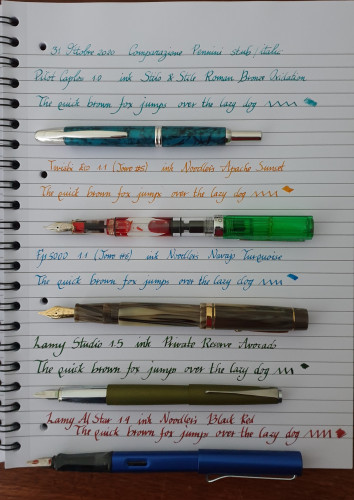 31 Ottobre 2020 Comparazione Pennini stub/italic
Pilot Capless 1.0 ink Stilo & Stile Roman Bronze Oxidation
The quick brown fox jumps over the lazy dog
Twsbi Eco 1.1 (Jowo #5) ink Noodler's Apache Sunset
The quick brown fox jumps over the lazy dog
1.1 (Jowo #6) ink Noodlers Navajo Turquoise
The quick brown fox jumps over the lazy dog
Lamy Studio 1.5 ink Private Reserve Avocado
The quick brown fox jumps over the lazy dog
Lamy Al Star 1.1 ink Noodler's Black Red
The quick brown fox jumps over the lazy dog